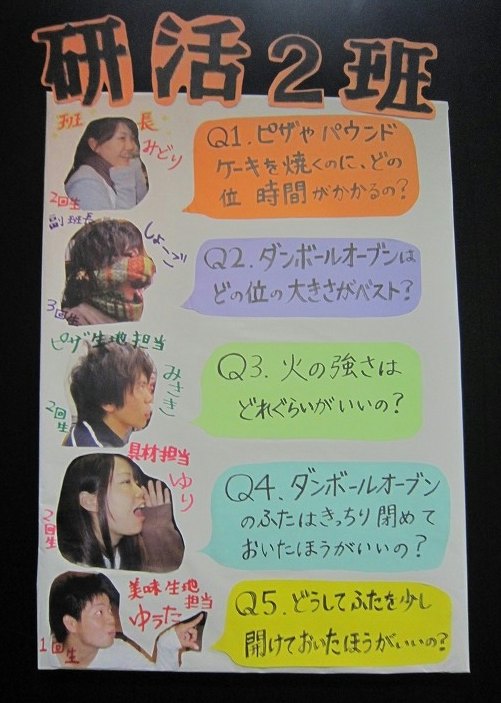 研活2班
班長
みどり
2回生
Q1.ピザやパウンド
ケーキを焼くのに、どの
位時間がかかるの?
副班長
しょーご
3回生
Q2.ダンボールオーブンは
どの位の大きさがベスト?
ピザ生地担当
みさき
2回生
Q3.火の強さは
どれぐらいがいいの?
具材担当
ゆり
2回生
Q4.ダンボールオーブン
のふたはきっちり閉めて
おいたほうがいいの?
美味生地
担当
ゆうた
1回生
Q5.どうしてふたを少し
開けておいたほうがいいの?